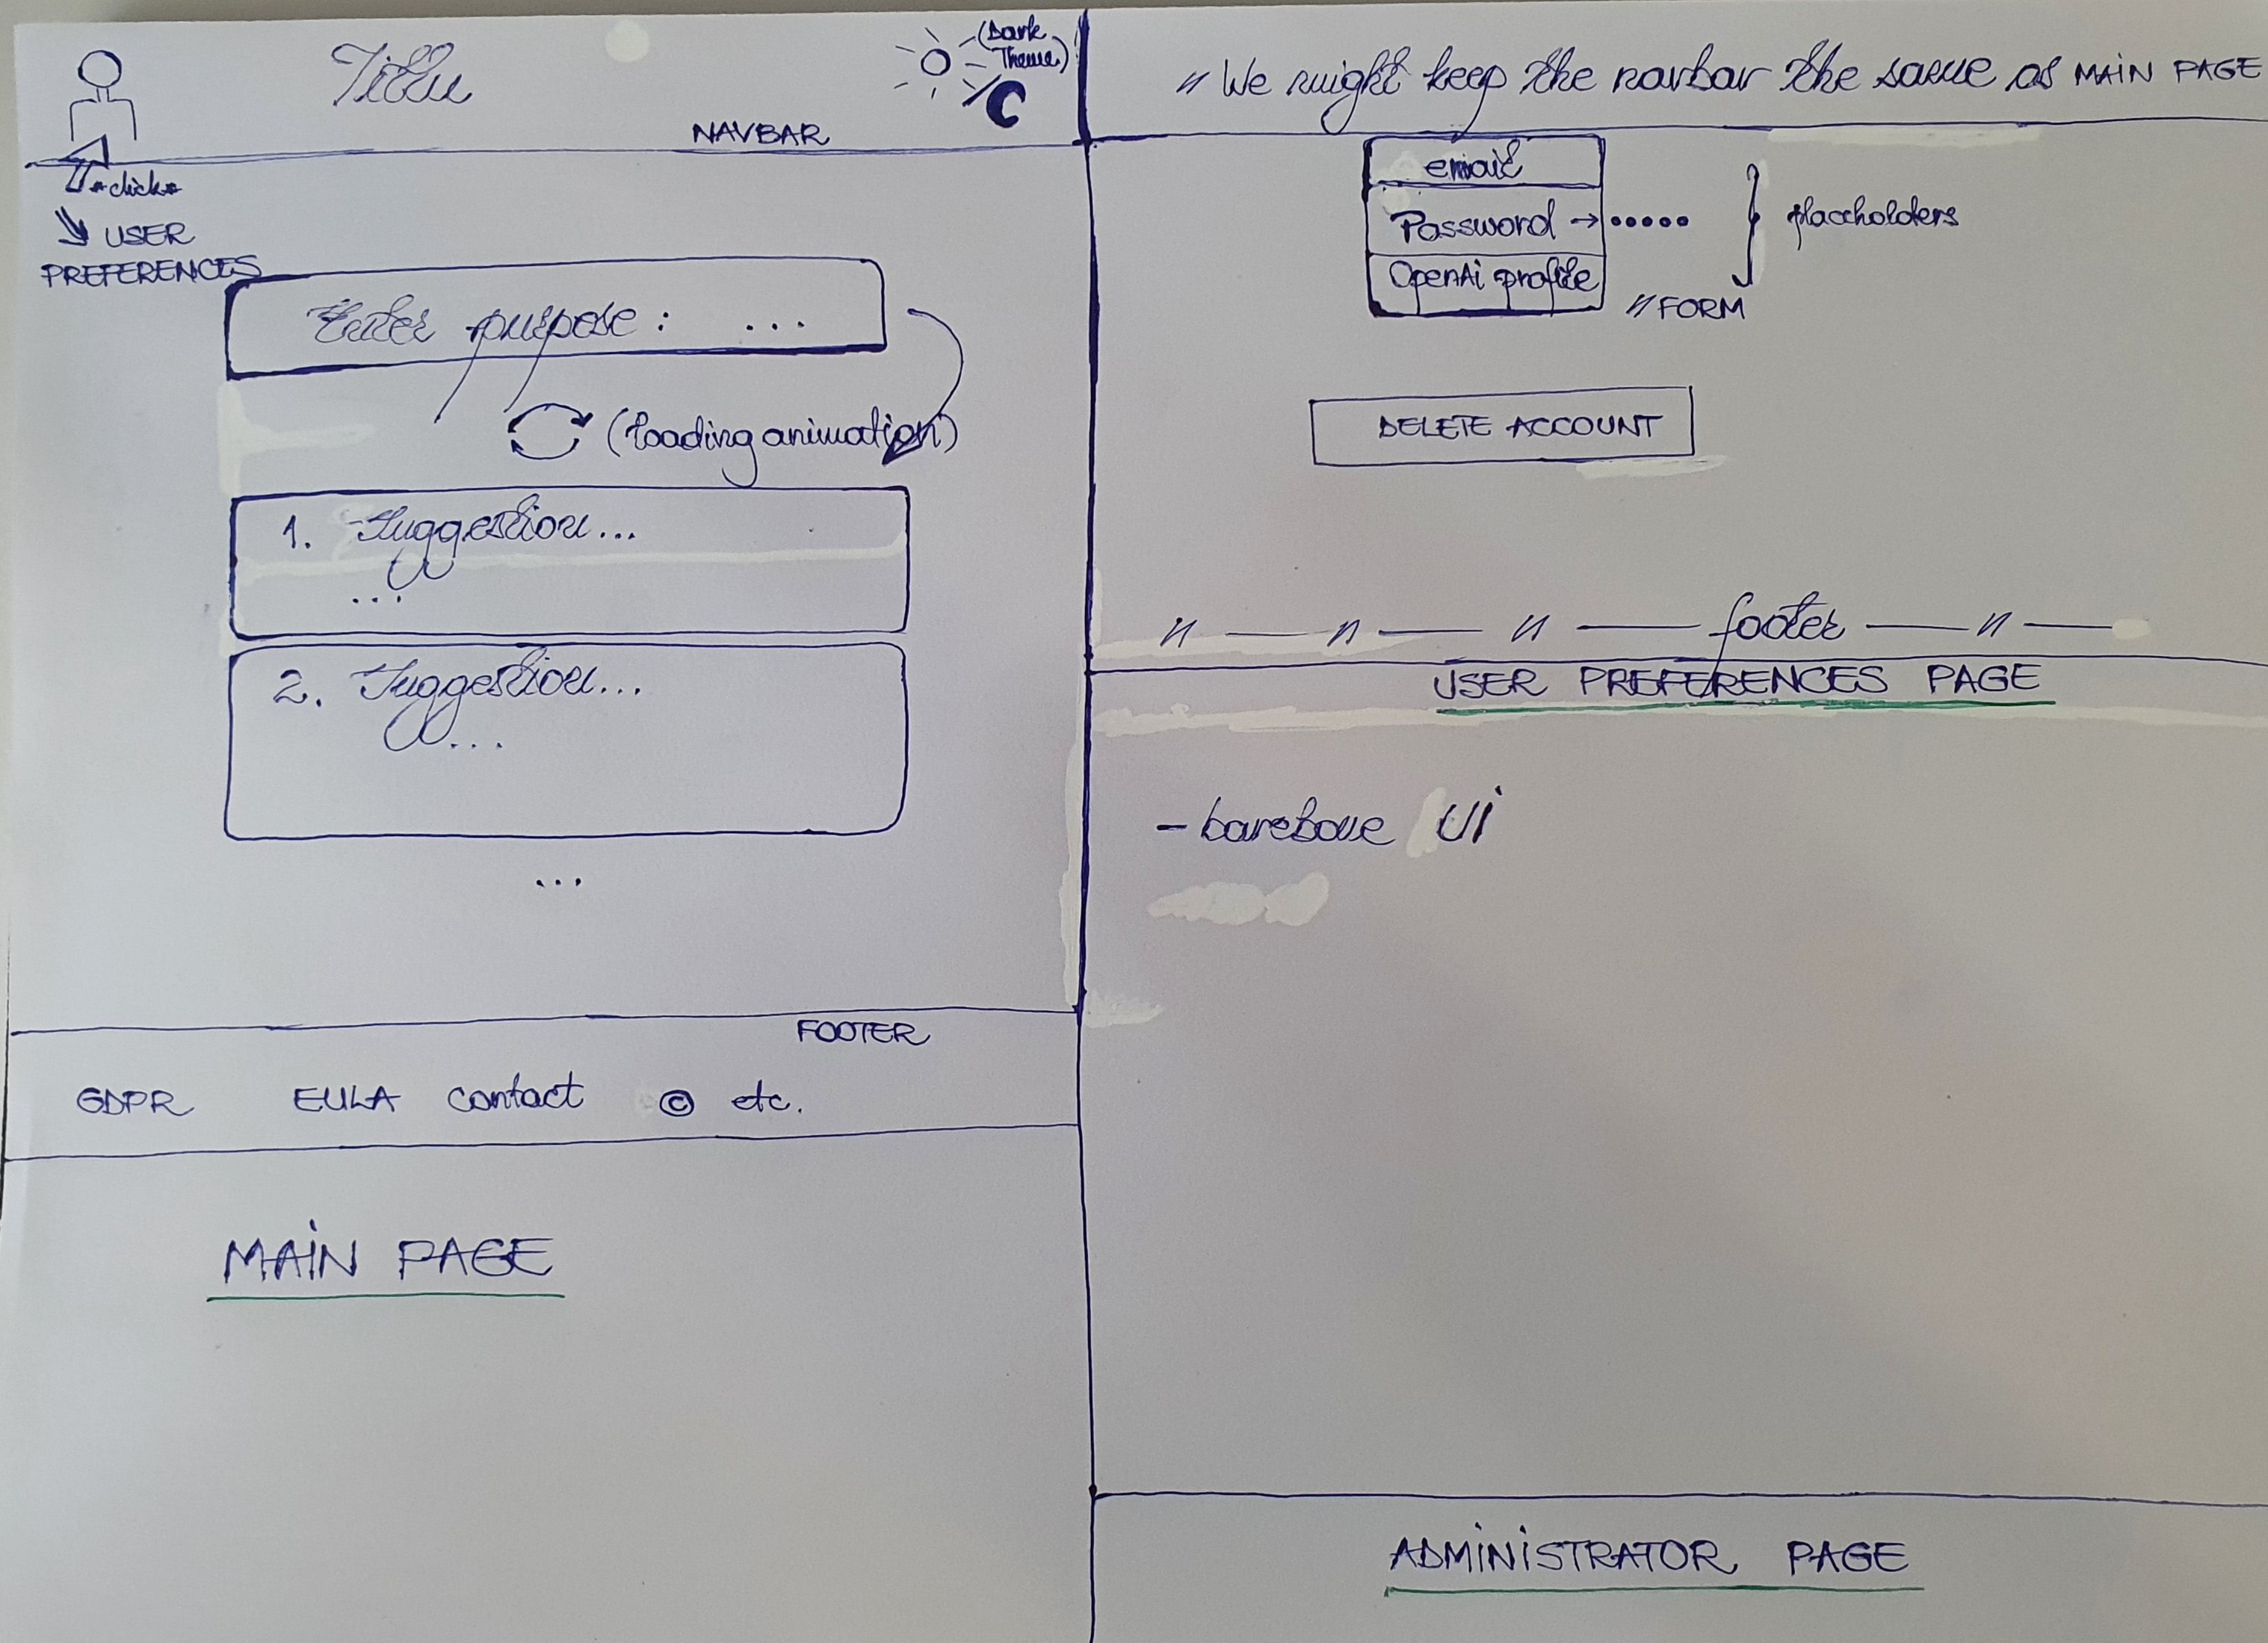 Titlu
(Dark
Theme)
NAVBAR
*click*
USER
PREFERENCES
Enter purpose: ...
(loading animation)
1. Suggestion...
...
2. Suggestion...
...
...
FOOTER
GDPR EULA contact © etc.
MAIN PAGE
// We might keep the navbar the same as MAIN PAGE
email
Password → •••••
OpenAi profile
placeholders
// FORM
DELETE ACCOUNT
// — // — // — footer — // —
USER PREFERENCES PAGE
- barebone UI
ADMINISTRATOR PAGE